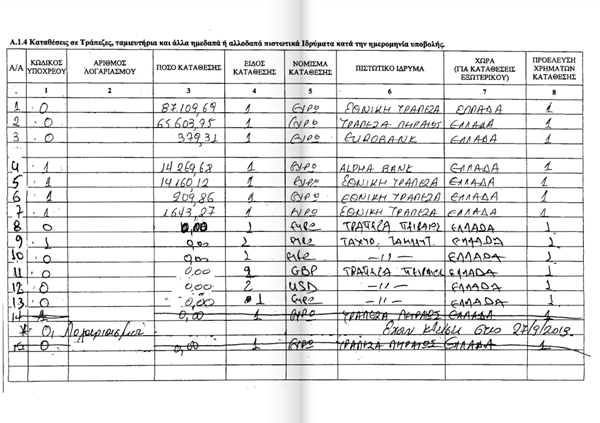 Α.1.4 Καταθέσεις σε Τράπεζες, ταμιευτήρια και άλλα ημεδαπά ή αλλοδαπά πιστωτικά Ιδρύματα κατά την ημερομηνία υποβολής.
Α/Α ΚΩΔΙΚΟΣ ΥΠΟΧΡΕΟΥ ΑΡΙΘΜΟΣ ΛΟΓΑΡΙΑΣΜΟΥ ΠΟΣΟ ΚΑΤΑΘΕΣΗΣ ΕΙΔΟΣ ΚΑΤΑΘΕΣΗΣ ΝΟΜΙΣΜΑ ΚΑΤΑΘΕΣΗΣ ΠΙΣΤΩΤΙΚΟ ΙΔΡΥΜΑ ΧΩΡΑ (ΓΙΑ ΚΑΤΑΘΕΣΕΙΣ ΕΞΩΤΕΡΙΚΟΥ) ΠΡΟΕΛΕΥΣΗ ΧΡΗΜΑΤΩΝ ΚΑΤΑΘΕΣΗΣ
1 2 3 4 5 6 7 8
1 0 87109,69 1 ΕΥΡΩ ΕΘΝΙΚΗ ΤΡΑΠΕΖΑ ΕΛΛΑΔΑ 1
2 0 65603,75 1 ΕΥΡΩ ΤΡΑΠΕΖΑ ΠΕΙΡΑΙΩΣ ΕΛΛΑΔΑ 1
3 0 379,31 1 ΕΥΡΩ EUROBANK ΕΛΛΑΔΑ 1
4 1 14269,68 1 ΕΥΡΩ ALPHA BANK ΕΛΛΑΔΑ 1
5 1 14160,12 1 ΕΥΡΩ ΕΘΝΙΚΗ ΤΡΑΠΕΖΑ ΕΛΛΑΔΑ 1
6 1 209,86 1 ΕΥΡΩ ΕΘΝΙΚΗ ΤΡΑΠΕΖΑ ΕΛΛΑΔΑ 1
7 1 1643,27 1 ΕΥΡΩ ΕΘΝΙΚΗ ΤΡΑΠΕΖΑ ΕΛΛΑΔΑ 1
8 0 0,00 1 ΕΥΡΩ ΤΡΑΠΕΖΑ ΠΕΙΡΑΙΩΣ ΕΛΛΑΔΑ 1
9 1 0,00 2 ΕΥΡΩ ΤΑΧΥΔ. ΤΑΜΙΕΥΤ. ΕΛΛΑΔΑ 1
10 0 0,00 2 ΕΥΡΩ -//- ΕΛΛΑΔΑ 1
11 0 0,00 2 GBP ΤΡΑΠΕΖΑ ΠΕΙΡΑΙΩΣ ΕΛΛΑΔΑ 1
12 0 0,00 2 USD -//- ΕΛΛΑΔΑ 1
13 0 0,00 1 ΕΥΡΩ -//- ΕΛΛΑΔΑ 1
14 1 0,00 1 ΕΥΡΩ ΤΡΑΠΕΖΑ ΠΕΙΡΑΙΩΣ ΕΛΛΑΔΑ 1
* Οι Λογαριασμοί έχουν κλείσει στις 27/9/2013
15 0 0,00 1 ΕΥΡΩ ΤΡΑΠΕΖΑ ΠΕΙΡΑΙΩΣ ΕΛΛΑΔΑ 1